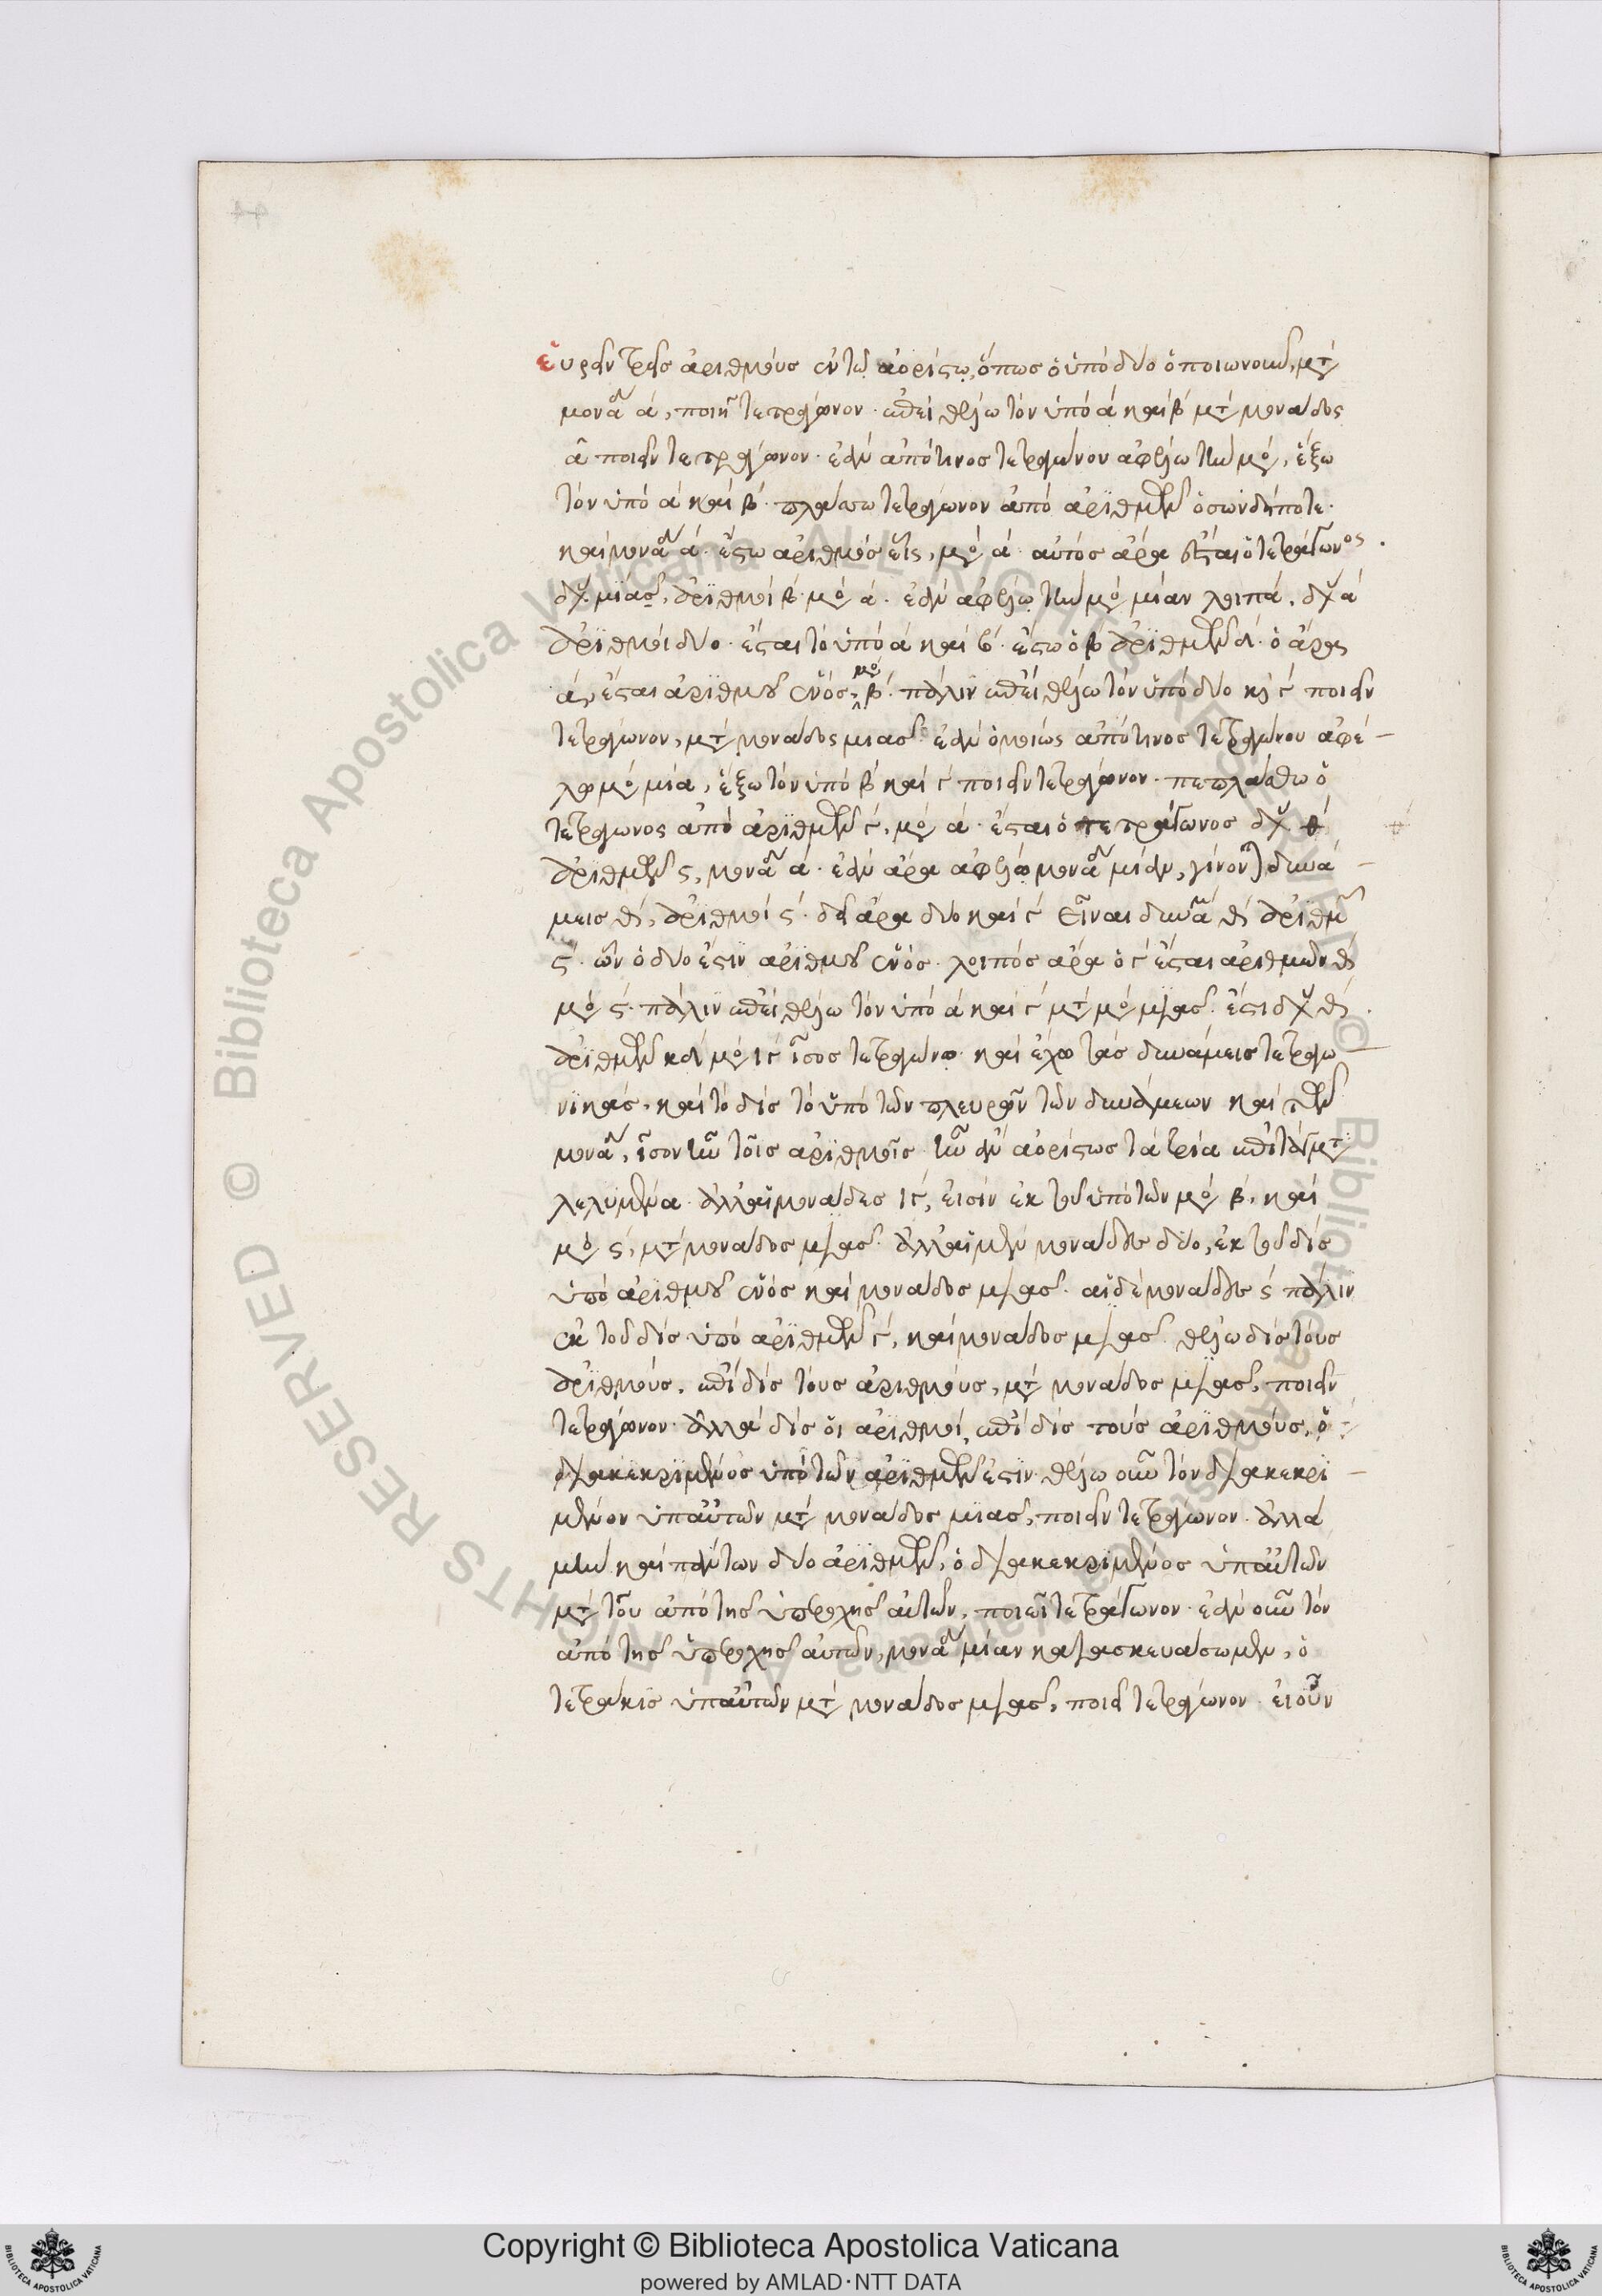 44
εὑρεῖν τρεῖς ἀριθμοὺς ἐν τῷ ἀορίστῳ, ὅπως ὁ ὑπὸ δύο ὁποιωνοῦν, μετ
μοναδ ά, ποιῇ τετράγωνον. ἐπεὶ θέλω τὸν ὑπὸ ά καὶ β μετ μονάδος
ά ποιεῖν τετράγωνον. ἐὰν ἀπό τινος τετραγώνου ἀφέλω τὴν μο, ἕξω
τὸν ὑπὸ ά καὶ β. πλάσσω τετράγωνον ἀπὸ ἀριθμῶν ὁσωνδήποτε.
καὶ μοναδ ά. ἔστω ἀριθμὸς εἷς, μο ά. αὐτὸς ἄρα ἔσται ὁ τετράγωνος.
δυ μιᾶς, ἀριθμοὶ β μο ά. ἐὰν ἀφέλω τὴν μο μίαν λοιπά, δυ ά
ἀριθμοὶ δύο. ἔσται τὸ ὑπὸ ά καὶ β. ἔστω ὁ β ἀριθμῶν ά. ὁ ἄρα
ά, ἔσται ἀριθμοῦ ἑνός, μο β. πάλιν ἐπεὶ θέλω τὸν ὑπὸ δύο καὶ γ ποιεῖν
τετράγωνον, μετ μονάδος μιᾶς. ἐὰν ὁμοίως ἀπό τινος τετραγώνου ἀφέ-
λω μο μία, ἕξω τὸν ὑπὸ β καὶ γ ποιεῖν τετράγωνον. πεπλάσθω ὁ
τετράγωνος ἀπὸ ἀριθμῶν γ, μο ά. ἔσται ὁ τετράγωνος δυ θ
ἀριθμῶν ς, μοναδ ά. ἐὰν ἄρα ἀφέλω μοναδ μίαν, γίνον δυνά-
μεις θ, ἀριθμοὶ ς. δεῖ ἄρα δύο καὶ γ εἶναι δυνα θ ἀριθμ
ς. ὧν ὁ δύο ἐστὶν ἀριθμοῦ ἑνός. λοιπὸς ἄρα ὁ γ ἔσται ἀριθμῶν θ
μο ς. πάλιν ἐπεὶ θέλω τὸν ὑπὸ ά καὶ γ μετ μο μιᾶς. ἐστι δυ θ
ἀριθμῶν κδ μο ιγ ἴσος τετραγώνῳ. καὶ ἔχω τὰς δυνάμεις τετραγω-
νικάς, καὶ τὸ δὶς τὸ ὑπὸ τῶν πλευρῶν τῶν δυνάμεων καὶ τῶν
μονα, ἴσον τοῖς ἀριθμοῖς ἀορίστως τὰ τρία ἐπιτάγματ
λελυμένα. ἀλλ' αἱ μονάδες ιγ, εἰσὶν ἐκ τοῦ ὑπὸ τῶν μο β, καὶ
μο ς, μετ μονάδος μιᾶς. ἀλλ' αἱ μὲν μονάδες δύο, ἐκ τοῦ δὶς
ὑπὸ ἀριθμοῦ ἑνὸς καὶ μονάδος μιᾶς. αἱ δὲ μονάδες ς πάλιν
ἐκ τοῦ δὶς ὑπὸ ἀριθμῶν γ, καὶ μονάδος μιᾶς. θέλω δὶς τοὺς
ἀριθμούς, ἐπὶ δὶς τοὺς ἀριθμούς, μετ μονάδος μιᾶς, ποιεῖν
τετράγωνον. ἀλλὰ δὶς οἱ ἀριθμοί, ἐπὶ δὶς τοὺς ἀριθμούς, ὁ
διακεκριμένος ὑπὸ τῶν ἀριθμῶν ἐστιν. θέλω οὖν τὸν διακεκρι-
μένον ὑπ' αὐτῶν μετ μονάδος μιᾶς, ποιεῖν τετράγωνον. ἀλλὰ
μὴν καὶ πάντων δύο ἀριθμῶν, ὁ διακεκριμένος ὑπ' αὐτῶν
μετ τοῦ ἀπὸ τῆς ὑπεροχῆς αὐτῶν, ποιεῖ τετράγωνον. ἐὰν οὖν τὸν
ἀπὸ τῆς ὑπεροχῆς αὐτῶν, μοναδ μίαν κατασκευάσωμεν, ὁ
τετράκις ὑπ' αὐτῶν μετ μονάδος μιᾶς, ποιεῖ τετράγωνον. εἰ οὖν
© Biblioteca Apostolica Vaticana ALL RIGHTS RESERVED
Copyright © Biblioteca Apostolica Vaticana
powered by AMLAD·NTT DATA